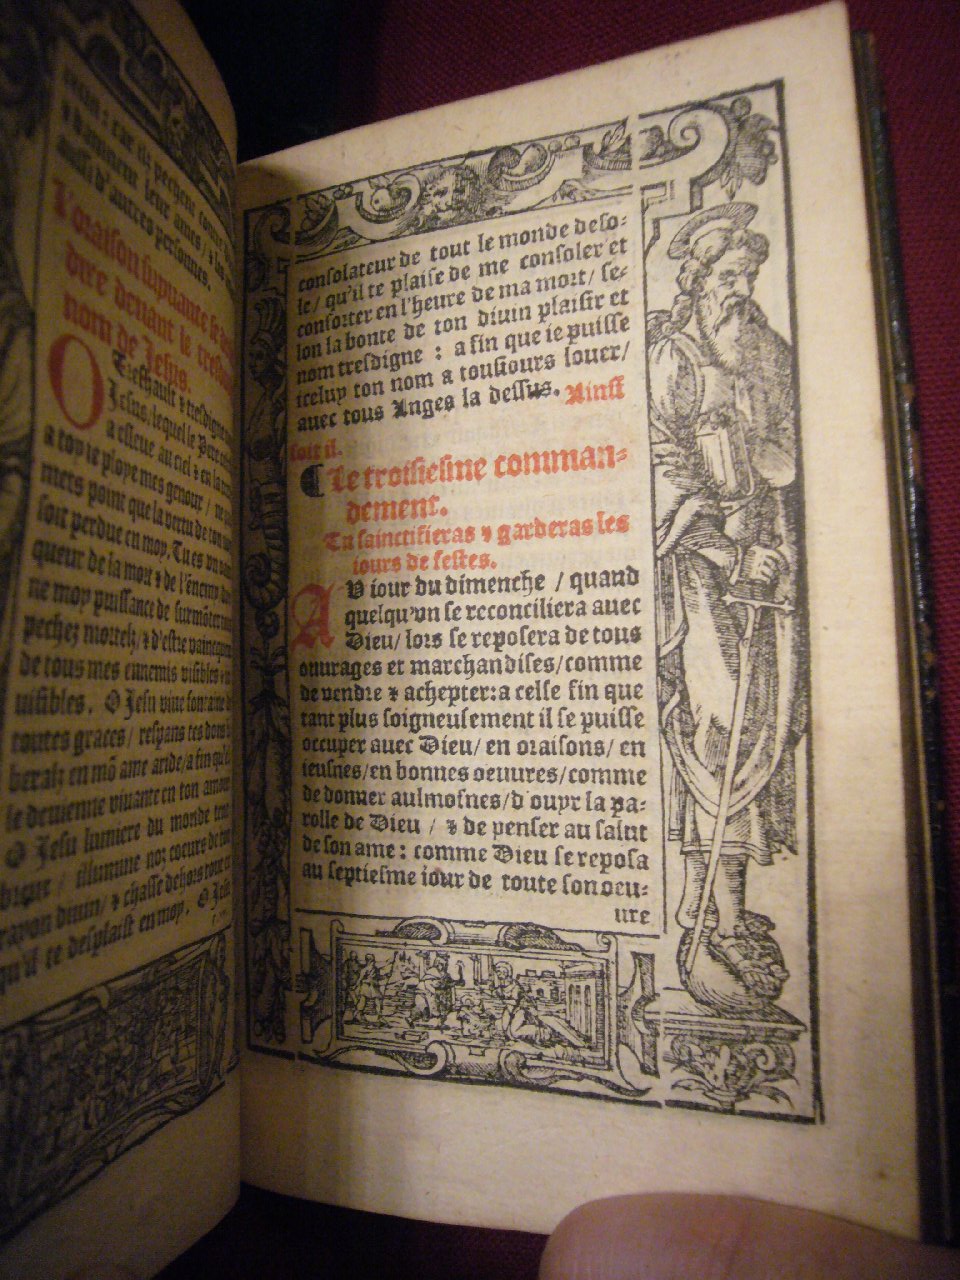 & damnent leur ames, & les
aussi d'autres personnes.
L'oraison suyuante se
dire deuant le tres
nom de Jesus.
O Treshault & tresdigne
Jesus, lequel le Pere
a esleue au ciel & en la
a toy ie ploye mes genoux / ne
mets point que la vertu de ton
soit perdue en moy. Tu es vn
queur de la mort & de l'ennemy
ne moy puissance de surmōter
pechez mortelz, & d'estre vainqueur
de tous mes ennemis visibles & in
uisibles. O Jesu viue fontaine
toutes graces / respans tes dons
beralz en mō ame aride / a fin qu'el
le deuienne viuante en ton amour
O Jesu lumiere du monde
illumine noz coeurs de
rayon diuin / & chasse dehors tout
qu'il te desplaist en moy. O Jesu
consolateur de tout le monde deso-
le / qu'il te plaise de me consoler et
conforter en l'heure de ma mort / se-
lon la bonte de ton diuin plaisir et
nom tresdigne : a fin que ie puisse
iceluy ton nom a tousiours louer /
auec tous Anges la dessus. Ainsi
soit il.
Le troisiesme comman-
dement.
Tu sainctifieras & garderas les
iours de festes.
AV iour du dimenche / quand
quelqu'vn se reconciliera auec
Dieu / lors se reposera de tous
ouurages et marchandises / comme
de vendre & achepter: a celse fin que
tant plus soigneusement il se puisse
occuper auec Dieu / en oraisons / en
ieusnes / en bonnes oeuures / comme
de donner aulmosnes / d'ouyr la pa-
rolle de Dieu / & de penser au salut
de son ame : comme Dieu se reposa
au septiesme iour de toute son oeu-
ure